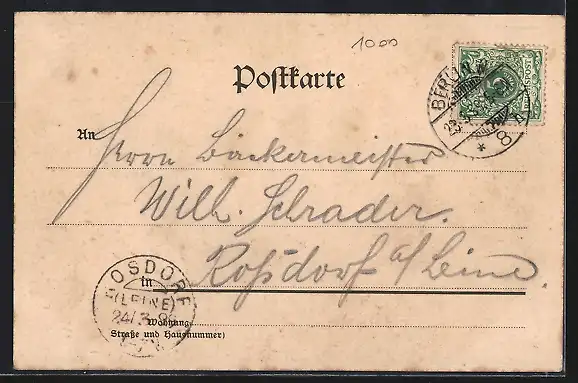 1000
Postkarte
BERLIN
8
An
Herrn Bäckermeister
Wilh. Schrader.
in Roßdorf a/Leine.
ROSDORF
(LEINE)
24/3
Wohnung
Straße und Hausnummer)